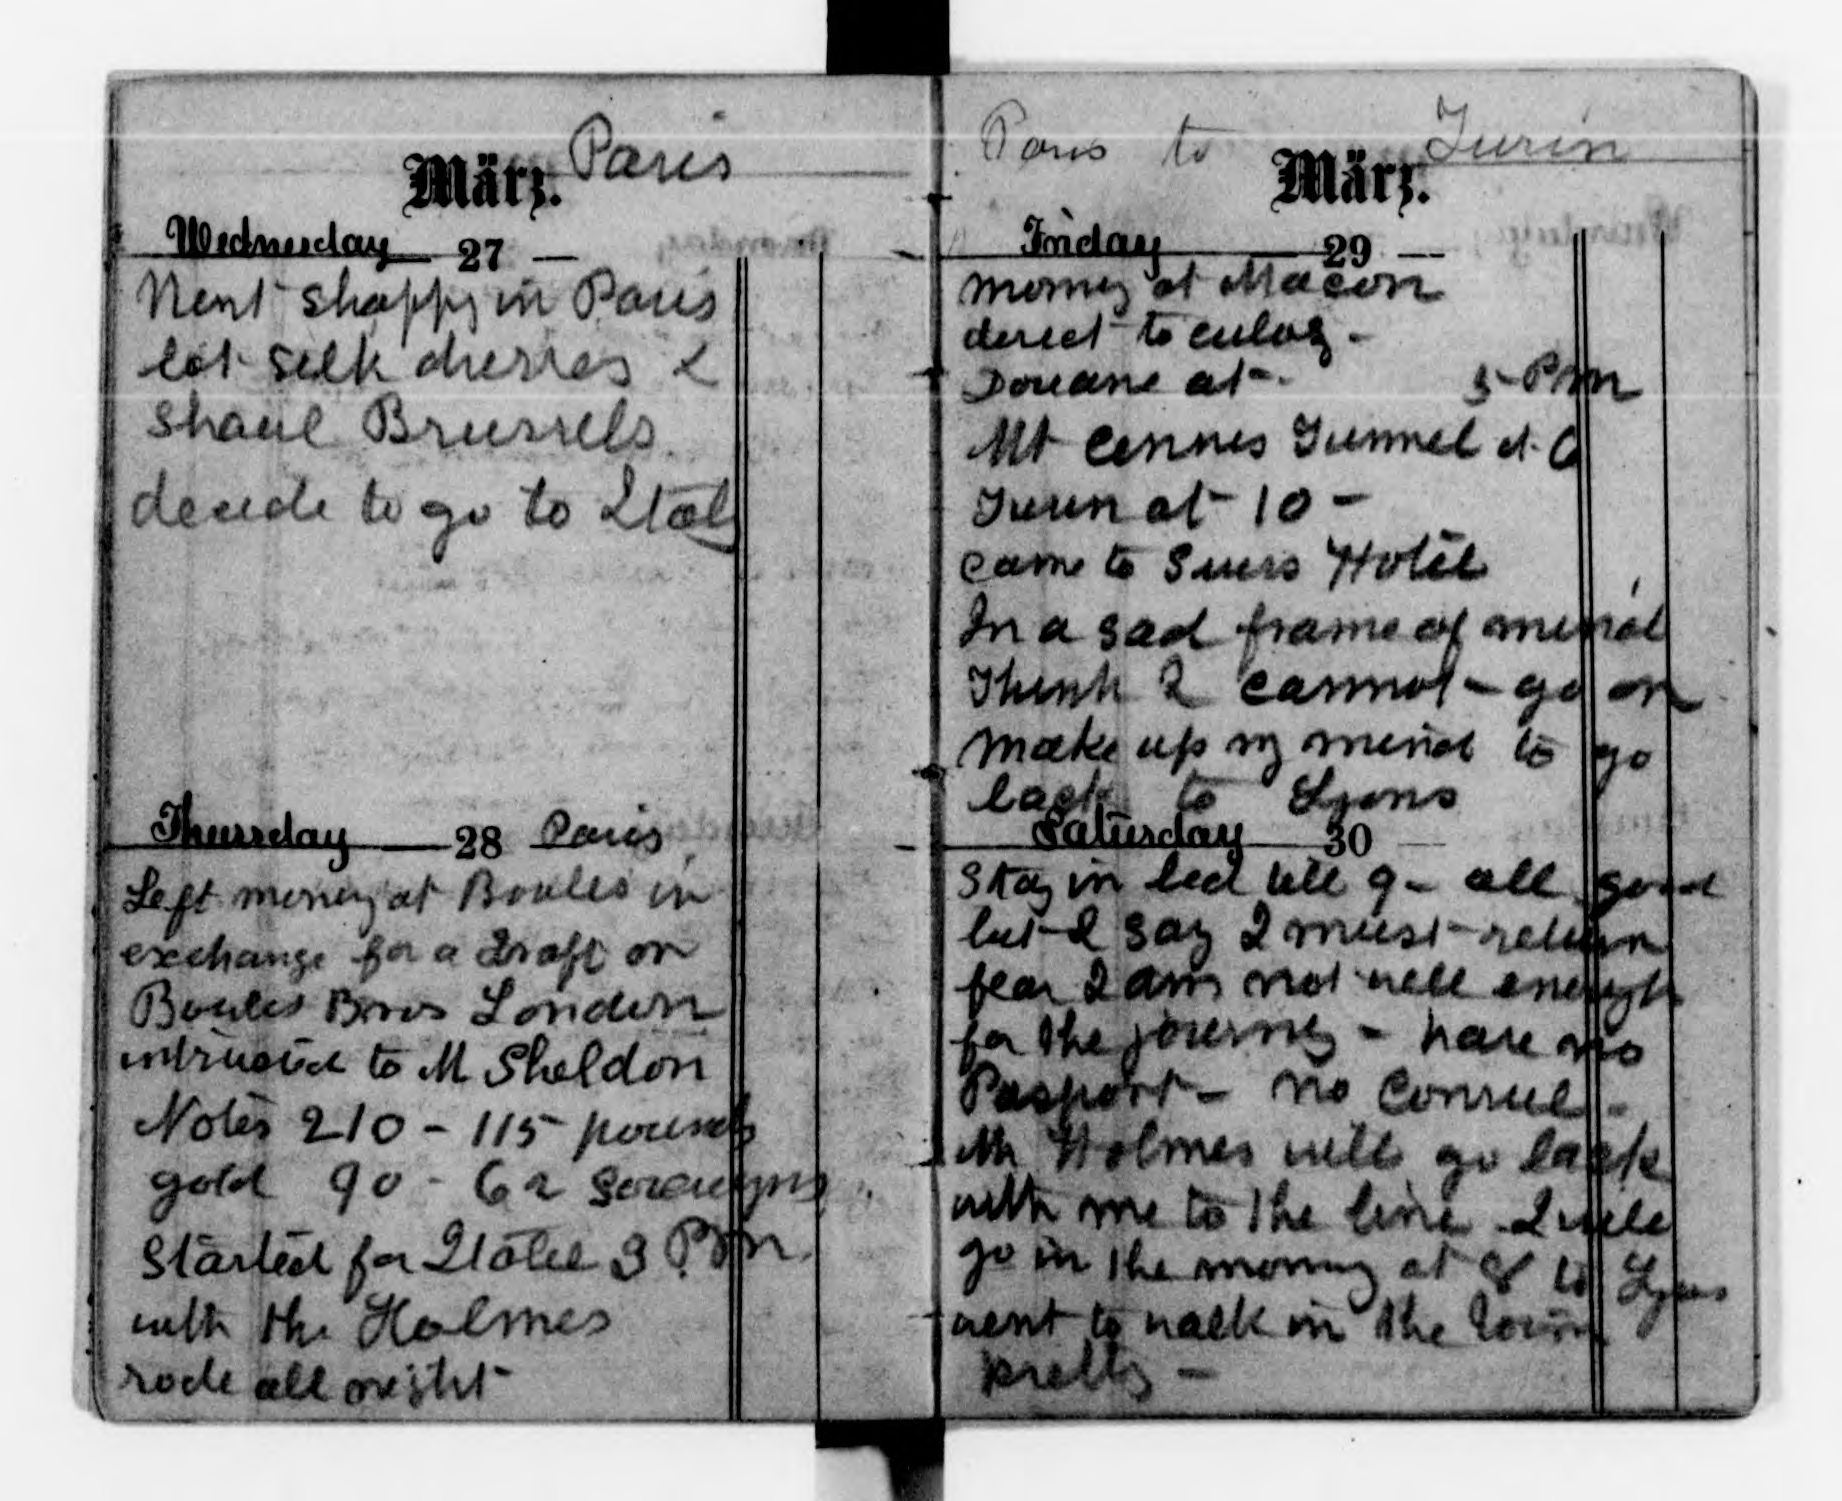 Paris
März.
Wednesday 27
Went shoppg in Paris
lot silk dresses &
Shawl Brussels
decide to go to Italy
Thursday 28 Paris
Left money at Bowles in
exchange for a Draft on
Bowles Bros London
intrusted to M Sheldon
Notes 210 - 115 pounds
gold 90 - 62 Sovereigns
Started for Italie 3 P.M.
with the Holmes
rode all night
Paris to Turin
März.
Friday 29
Morning at Macon
direct to Culoz -
Douane at - 5 PM
Mt Cennis Tunnel at 6
Turin at 10 -
came to Hotel
In a sad frame of mind
Think I cannot - go on
Make up my mind to go
back to Lyons
Saturday 30
Stay in bed till 9 - all good
but I say I must return
fear I am not well enough
for the journey - have no
Pasport - no Consul -
Mr Holmes will go back
with me to the line I will
go in the morning at 8 to Lyons
went to walk in the town
pretty -